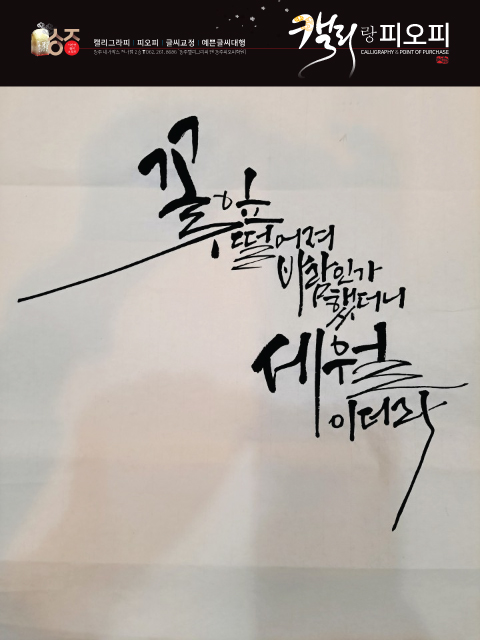 상주
캘리그라피 | 피오피 | 글씨교정 | 예쁜글씨대행
캘리랑 피오피
CALLIGRAPHY & POINT OF PURCHASE
꽃잎
떨어져
바람인가
했더니
세월
이더라